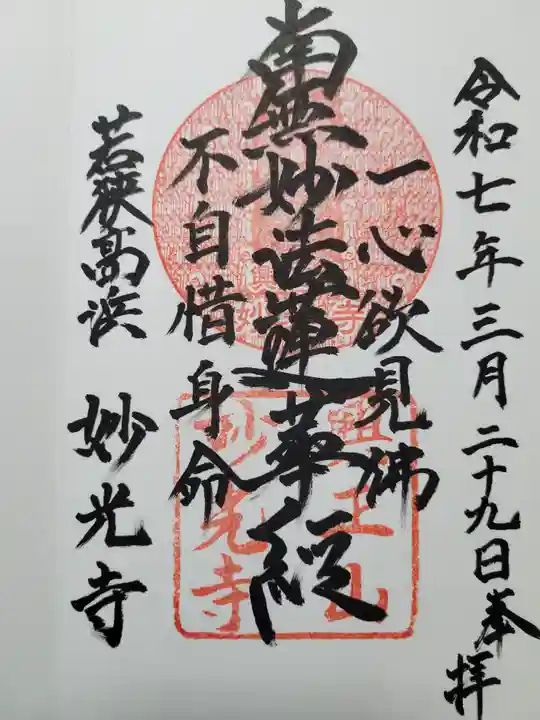 令和七年三月二十九日奉拝
一心欲見佛
南無妙法蓮華経
不自惜身命
若狭高浜 妙光寺
山
妙光寺